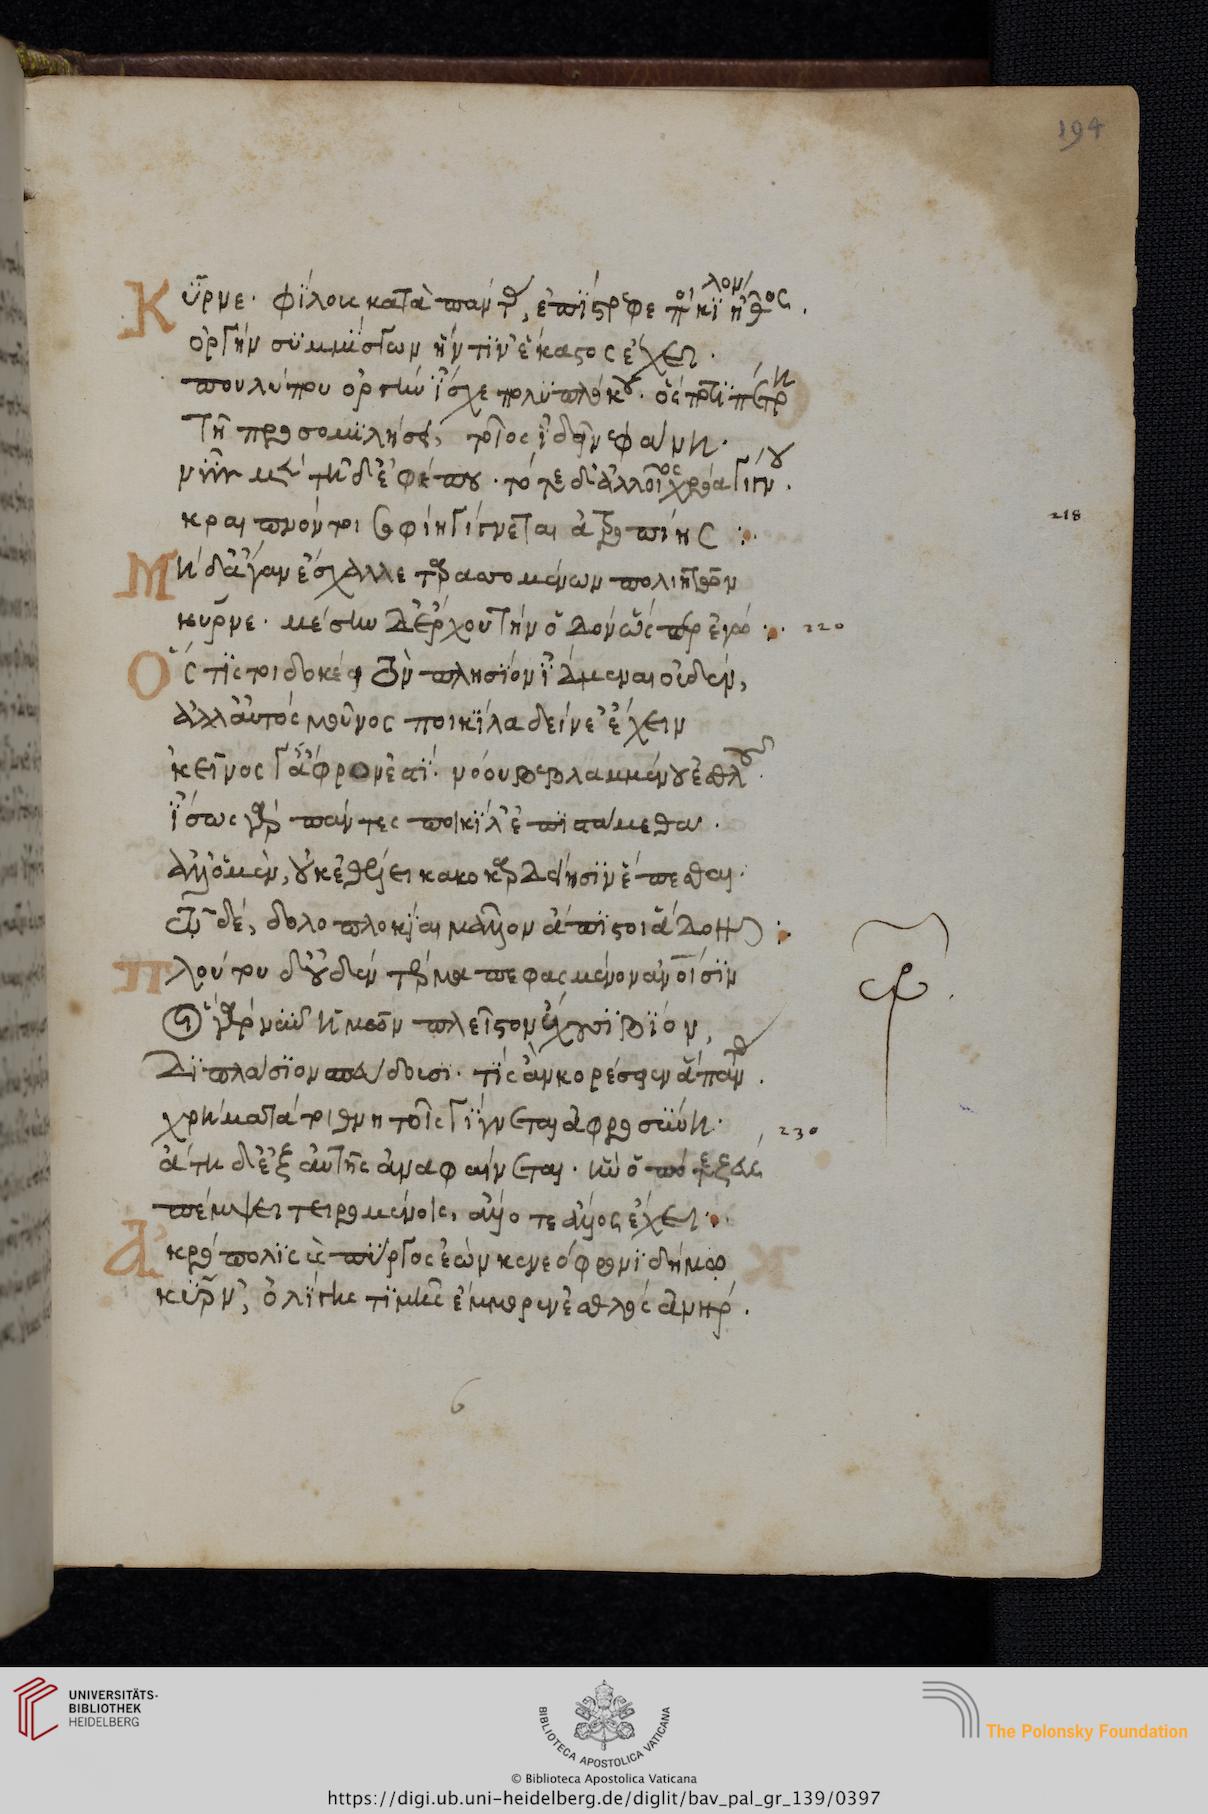 194
Κύρνε· φίλους κατὰ πάντας ἐπίστρεφε ποικίλον ἦθος.
ὀργὴν συμμίσγων ἥντιν' ἕκαστος ἔχει·
πουλύπου ὀργὴν ἴσχε πολυπλόκου· ὃς ποτὶ πέτρη
τῇ προσομιλήσῃ, τοῖος ἰδεῖν ἐφάνη·
νῦν μὲν τῇδ' ἐφέπου· τότε δ' ἀλλοῖος χρόα γίγνου.
κραιπνόν τοι σοφίη γίγνεται ἀτροπίης :
218
Μηδ' ἄγαν ἄσχαλλε ταρασσομένων πολιητέων
κύρνε· μέσην δ' ἔρχου τὴν ὁδὸν ὥς περ ἐγώ :
220
Ὅς τις τοι δοκέει τὸν πλησίον ἴδμεναι οὐδέν,
ἀλλ' αὐτὸς μοῦνος ποικίλα δήνε' ἔχειν
κεῖνος γ' ἄφρον ἐστί· νόου βεβλαμμένου ἐσθλοῦ·
ἴσως γὰρ πάντες ποικίλ' ἐπιστάμεθα·
ἀλλ' ὁ μὲν, οὐκ ἐθέλει κακοκερδείῃσιν ἕπεσθαι·
τῷ δέ, δολοπλοκίαι μᾶλλον ἄπιστοι ἅδον :
Πλούτου δ' οὐδὲν τέρμα πεφασμένον ἀνθρώποισιν
οἳ γὰρ νῦν ἡμέων πλεῖστον ἔχουσι βίον,
διπλάσιον σπεύδουσι· τίς ἂν κορέσειεν ἅπαντας.
χρήματά τοι θνητοῖς γίγνεται ἀφροσύνη·
230
ἄτη δ' ἐξ αὐτῆς ἀναφαίνεται· ἣν ὁπότε Ζεὺς
πέμψει τειρομένοις, ἄλλοτε ἄλλος ἔχει :
Ἀκρόπολις καὶ πύργος ἐὼν κενεόφρονι δήμῳ
κύρν', ὀλίγης τιμῆς ἔμμορεν ἐσθλὸς ἀνήρ.
UNIVERSITÄTS-
BIBLIOTHEK
HEIDELBERG
BIBLIOTECA APOSTOLICA VATICANA
The Polonsky Foundation
© Biblioteca Apostolica Vaticana
https://digi.ub.uni-heidelberg.de/diglit/bav_pal_gr_139/0397